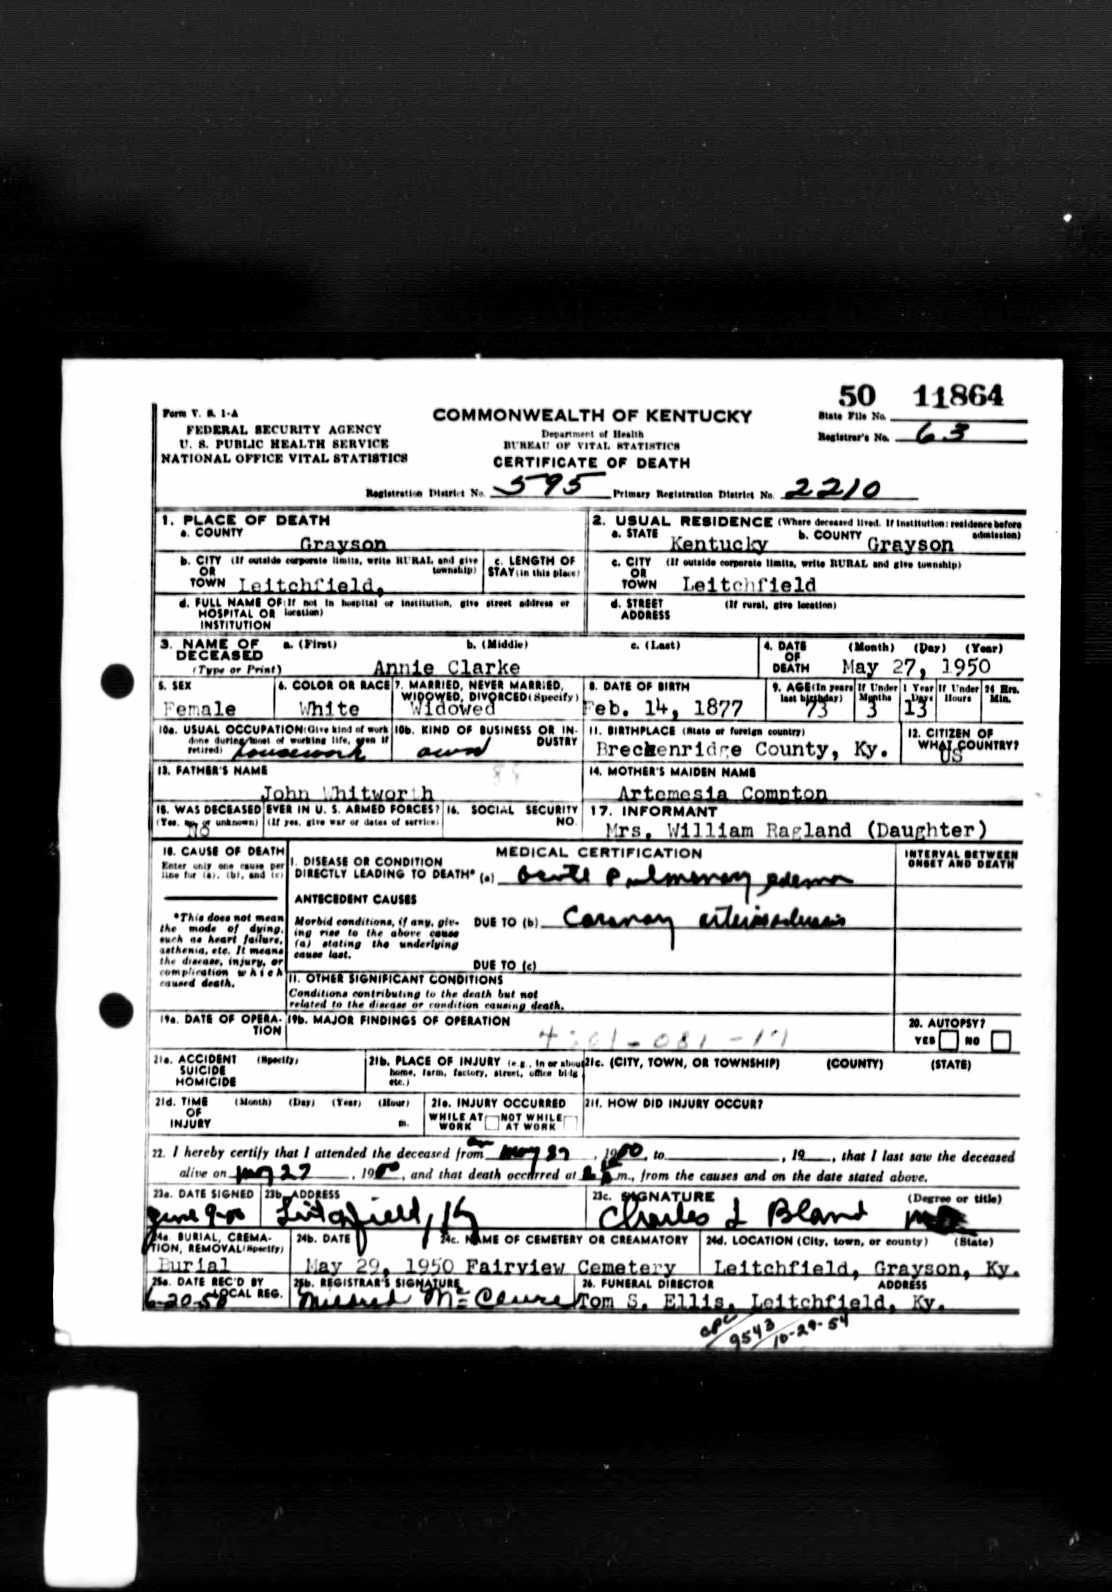 50 11864
Form V. S. 1-A
COMMONWEALTH OF KENTUCKY
State File No.
FEDERAL SECURITY AGENCY
Department of Health
Registrar's No. 63
U. S. PUBLIC HEALTH SERVICE
BUREAU OF VITAL STATISTICS
NATIONAL OFFICE VITAL STATISTICS
CERTIFICATE OF DEATH
Registration District No. 595 Primary Registration District No. 2210
1. PLACE OF DEATH
a. COUNTY Grayson
2. USUAL RESIDENCE (Where deceased lived. If institution: residence before admission)
a. STATE Kentucky b. COUNTY Grayson
b. CITY (If outside corporate limits, write RURAL and give township)
OR
TOWN Leitchfield,
c. LENGTH OF
STAY (in this place)
c. CITY (If outside corporate limits, write RURAL and give township)
OR
TOWN Leitchfield
d. FULL NAME OF (If not in hospital or institution, give street address or location)
HOSPITAL OR
INSTITUTION
d. STREET (If rural, give location)
ADDRESS
3. NAME OF DECEASED a. (First) b. (Middle) c. (Last)
(Type or Print) Annie Clarke
4. DATE OF DEATH (Month) (Day) (Year)
May 27, 1950
5. SEX
Female
6. COLOR OR RACE
White
7. MARRIED, NEVER MARRIED, WIDOWED, DIVORCED (Specify)
Widowed
8. DATE OF BIRTH
Feb. 14, 1877
9. AGE (In years last birthday)
73
If Under 1 Year
Months 3 Days 13
If Under 24 Hrs.
Hours Min.
10a. USUAL OCCUPATION (Give kind of work done during most of working life, even if retired) housework
10b. KIND OF BUSINESS OR INDUSTRY
own
11. BIRTHPLACE (State or foreign country)
Breckenridge County, Ky.
12. CITIZEN OF WHAT COUNTRY?
US
13. FATHER'S NAME
John Whitworth
14. MOTHER'S MAIDEN NAME
Artemesia Compton
15. WAS DECEASED EVER IN U. S. ARMED FORCES?
(Yes, no, or unknown) (If yes, give war or dates of service)
No
16. SOCIAL SECURITY NO.
17. INFORMANT
Mrs. William Ragland (Daughter)
18. CAUSE OF DEATH
Enter only one cause per line for (a), (b), and (c)
MEDICAL CERTIFICATION
INTERVAL BETWEEN ONSET AND DEATH
I. DISEASE OR CONDITION
DIRECTLY LEADING TO DEATH* (a) acute Pulmonary edema
*This does not mean the mode of dying, such as heart failure, asthenia, etc. It means the disease, injury, or complication which caused death.
ANTECEDENT CAUSES
Morbid conditions, if any, giving rise to the above cause (a) stating the underlying cause last.
DUE TO (b) Coronary arteriosclerosis
DUE TO (c)
II. OTHER SIGNIFICANT CONDITIONS
Conditions contributing to the death but not related to the disease or condition causing death.
19a. DATE OF OPERATION
19b. MAJOR FINDINGS OF OPERATION
20. AUTOPSY?
YES NO
21a. ACCIDENT (Specify)
SUICIDE
HOMICIDE
21b. PLACE OF INJURY (e.g., in or about home, farm, factory, street, office bldg etc.)
21c. (CITY, TOWN, OR TOWNSHIP) (COUNTY) (STATE)
21d. TIME OF INJURY (Month) (Day) (Year) (Hour) m.
21e. INJURY OCCURRED
WHILE AT WORK NOT WHILE AT WORK
21f. HOW DID INJURY OCCUR?
22. I hereby certify that I attended the deceased from on May 27, 1950, to , 19 , that I last saw the deceased
alive on May 27, 1950, and that death occurred at m., from the causes and on the date stated above.
23a. DATE SIGNED
June 9-50
23b. ADDRESS
Leitchfield, Ky
23c. SIGNATURE (Degree or title)
Charles L Bland MD
24a. BURIAL, CREMATION, REMOVAL (Specify)
Burial
24b. DATE
May 29, 1950
24c. NAME OF CEMETERY OR CREAMATORY
Fairview Cemetery
24d. LOCATION (City, town, or county) (State)
Leitchfield, Grayson, Ky.
25a. DATE REC'D BY LOCAL REG.
6-20-50
25b. REGISTRAR'S SIGNATURE
Mildred McClure
26. FUNERAL DIRECTOR ADDRESS
Tom S. Ellis, Leitchfield, Ky.
9543 10-29-54